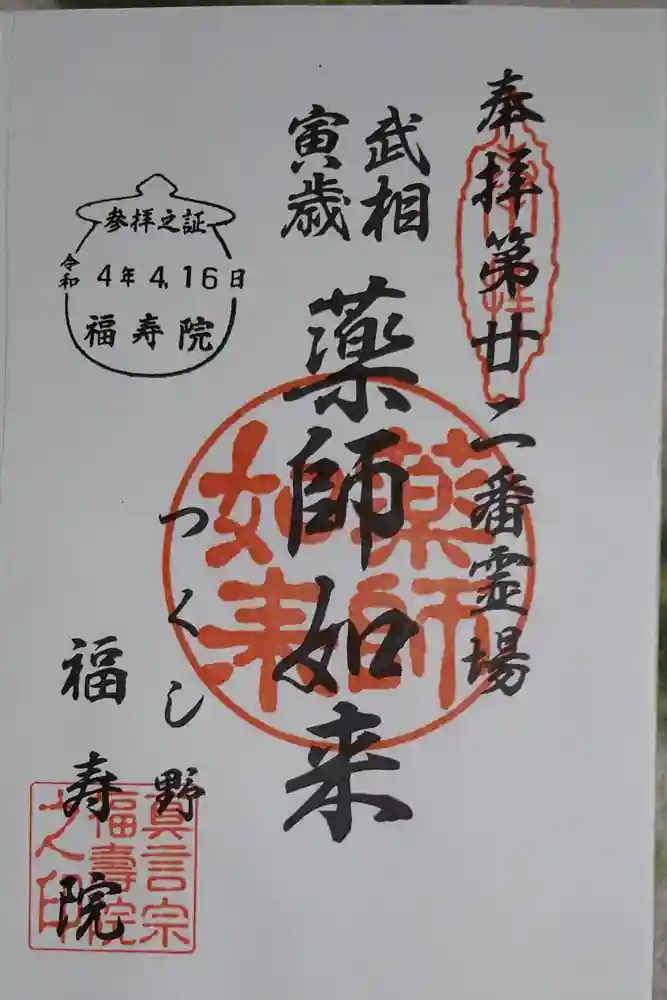 奉拝第廿二番霊場
武相
寅歳
薬師如来
つくし野
福寿院
参拝之証
令和4年4.16日
福寿院
薬師
如来
真言宗
福壽院